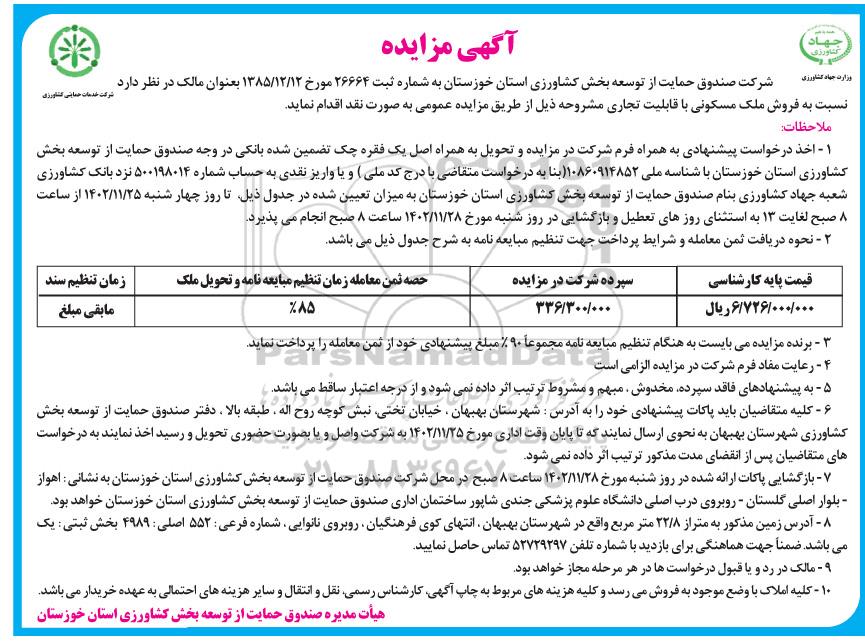 آگهی مزایده
جهاد کشاورزی
وزارت جهاد کشاورزی
شرکت خدمات حمایتی کشاورزی
شرکت صندوق حمایت از توسعه بخش کشاورزی استان خوزستان به شماره ثبت ۲۶۶۶۴ مورخ ۱۳۸۵/۱۲/۱۲ بعنوان مالک در نظر دارد
نسبت به فروش ملک مسکونی با قابلیت تجاری مشروحه ذیل از طریق مزایده عمومی به صورت نقد اقدام نماید.
ملاحظات:
۱ - اخذ درخواست پیشنهادی به همراه فرم شرکت در مزایده و تحویل به همراه اصل یک فقره چک تضمین شده بانکی در وجه صندوق حمایت از توسعه بخش
کشاورزی استان خوزستان با شناسه ملی ۱۰۸۶۰۹۱۴۸۵۲(بنا به درخواست متقاضی با درج کد ملی ) و یا واریز نقدی به حساب شماره ۵۰۰۱۹۸۰۱۴ نزد بانک کشاورزی
شعبه جهاد کشاورزی بنام صندوق حمایت از توسعه بخش کشاورزی استان خوزستان به میزان تعیین شده در جدول ذیل، تا روز چهار شنبه ۱۴۰۲/۱۱/۲۵ از ساعت
۸ صبح لغایت ۱۳ به استثنای روز های تعطیل و بازگشایی در روز شنبه مورخ ۱۴۰۲/۱۱/۲۸ ساعت ۸ صبح انجام می پذیرد.
۲ - نحوه دریافت ثمن معامله و شرایط پرداخت جهت تنظیم مبایعه نامه به شرح جدول ذیل می باشد.
قیمت پایه کارشناسی سپرده شرکت در مزایده حصه ثمن معامله زمان تنظیم مبایعه نامه و تحویل ملک زمان تنظیم سند
۶/۷۲۶/۰۰۰/۰۰۰ ریال ۳۳۶/۳۰۰/۰۰۰ ۸۵٪ مابقی مبلغ
۳ - برنده مزایده می بایست به هنگام تنظیم مبایعه نامه مجموعاً ۹۰٪ مبلغ پیشنهادی خود از ثمن معامله را پرداخت نماید.
۴ - رعایت مفاد فرم شرکت در مزایده الزامی است
۵ - به پیشنهادهای فاقد سپرده، مخدوش ، مبهم و مشروط ترتیب اثر داده نمی شود و از درجه اعتبار ساقط می باشد.
۶ - کلیه متقاضیان باید پاکات پیشنهادی خود را به آدرس : شهرستان بهبهان ، خیابان تختی، نبش کوچه روح اله ، طبقه بالا ، دفتر صندوق حمایت از توسعه بخش
کشاورزی شهرستان بهبهان به نحوی ارسال نمایند که تا پایان وقت اداری مورخ ۱۴۰۲/۱۱/۲۵ به شرکت واصل و یا بصورت حضوری تحویل و رسید اخذ نمایند به درخواست
های متقاضیان پس از انقضای مدت مذکور ترتیب اثر داده نمی شود.
۷ - بازگشایی پاکات ارائه شده در روز شنبه مورخ ۱۴۰۲/۱۱/۲۸ ساعت ۸ صبح در محل شرکت صندوق حمایت از توسعه بخش کشاورزی استان خوزستان به نشانی : اهواز
- بلوار اصلی گلستان - روبروی درب اصلی دانشگاه علوم پزشکی جندی شاپور ساختمان اداری صندوق حمایت از توسعه بخش کشاورزی استان خوزستان خواهد بود.
۸ - آدرس زمین مذکور به متراز ۲۲/۸ متر مربع واقع در شهرستان بهبهان ، انتهای کوی فرهنگیان ، روبروی نانوایی ، شماره فرعی : ۵۵۲ اصلی : ۴۹۸۹ بخش ثبتی : یک
می باشد. ضمناً جهت هماهنگی برای بازدید با شماره تلفن ۵۲۷۲۹۲۹۷ تماس حاصل نمایید.
۹ - مالک در رد و یا قبول درخواست ها در هر مرحله مجاز خواهد بود.
۱۰ - کلیه املاک با وضع موجود به فروش می رسد و کلیه هزینه های مربوط به چاپ آگهی، کارشناس رسمی، نقل و انتقال و سایر هزینه های احتمالی به عهده خریدار می باشد.
هیأت مدیره صندوق حمایت از توسعه بخش کشاورزی استان خوزستان
ParsNamadData
۰۲۱-۸۸۳۴۹۶۷۰-۵